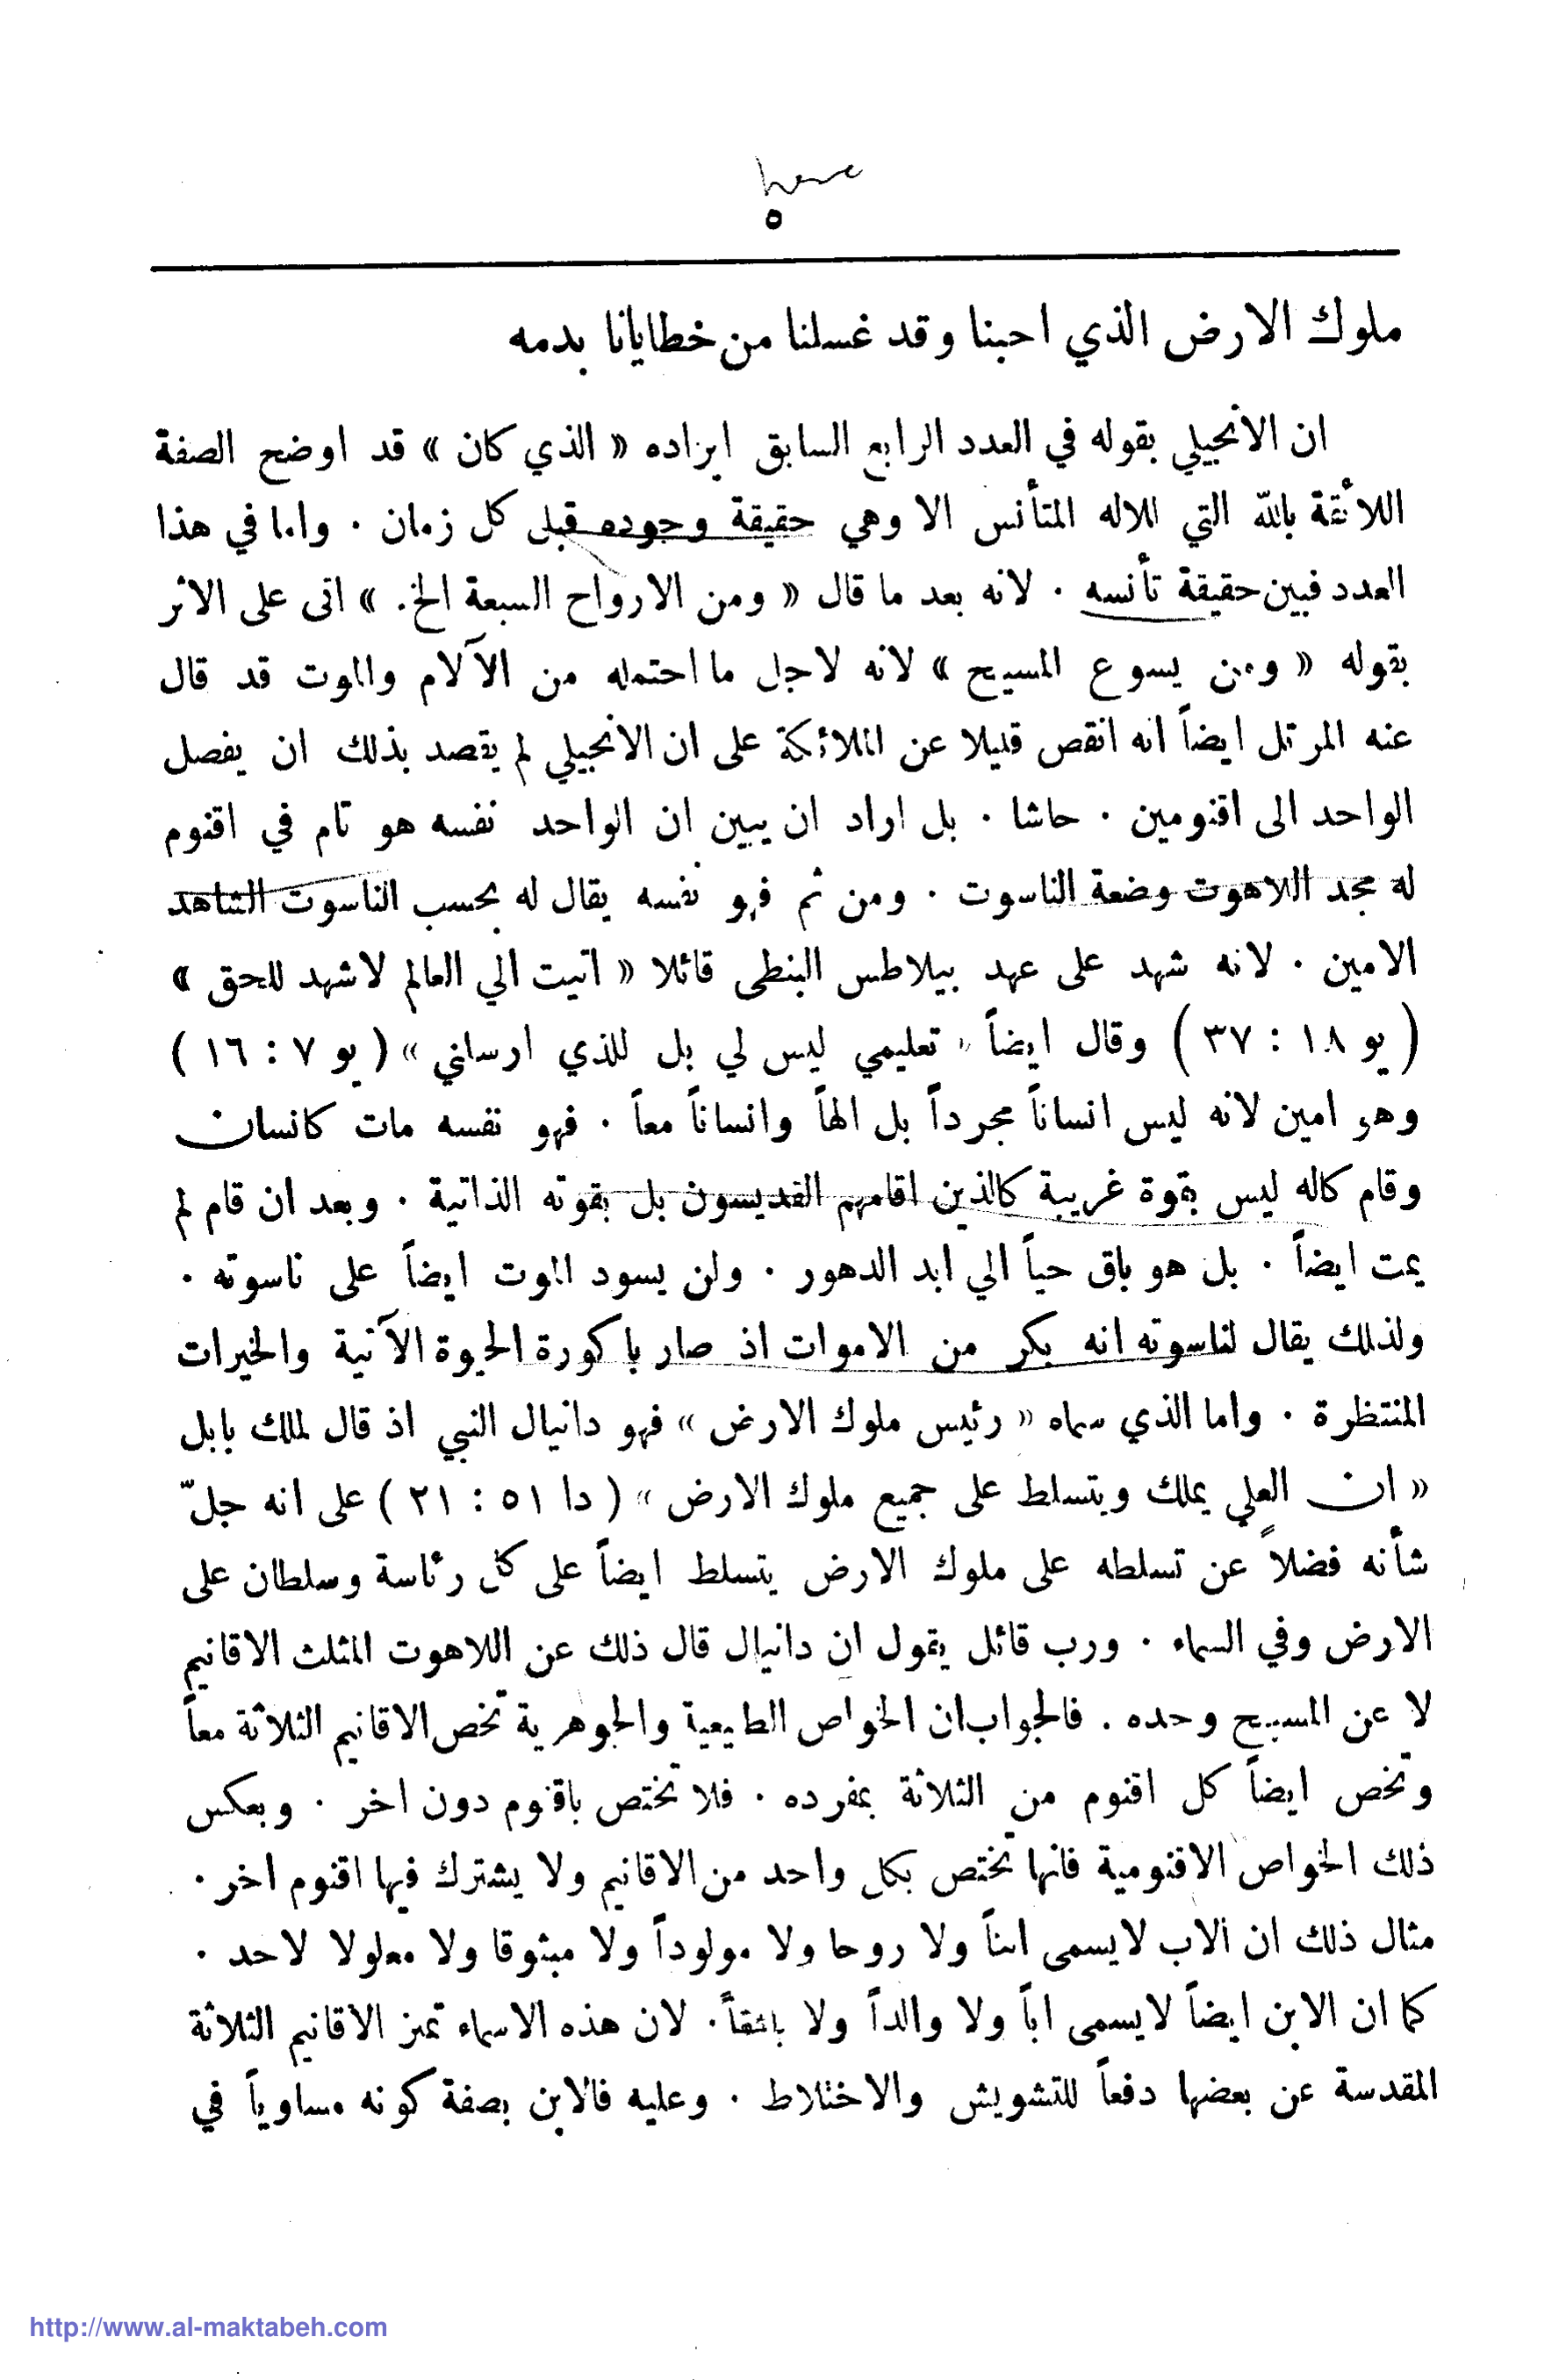 here
٥
ملوك الارض الذي احبنا وقد غسلنا من خطايانا بدمه
ان الانجيلي بقوله في العدد الرابع السابق ايراده « الذي كان » قد اوضح الصفة
اللائقة بالله التي للاله المتأنس الا وهي حقيقة وجوده قبل كل زمان ٠ واما في هذا
العدد فبين حقيقة تأنسه ٠ لانه بعد ما قال « ومن الارواح السبعة الخ. » اتى على الاثر
بقوله « ومن يسوع المسيح » لانه لاجل ما احتمله من الآلام والموت قد قال
عنه المرتل ايضاً انه انقص قليلا عن الملائكة على ان الانجيلي لم يقصد بذلك ان يفصل
الواحد الى اقنومين ٠ حاشا ٠ بل اراد ان يبين ان الواحد نفسه هو تام في اقنوم
له مجد اللاهوت وضعة الناسوت ٠ ومن ثم فهو نفسه يقال له بحسب الناسوت الشاهد
الامين ٠ لانه شهد على عهد بيلاطس البنطى قائلا « اتيت الي العالم لاشهد للحق »
( يو ١٨ : ٣٧ ) وقال ايضاً « تعليمي ليس لي بل للذي ارسلني » ( يو ٧ : ١٦ )
وهو امين لانه ليس انساناً مجرداً بل الهاً وانساناً معاً ٠ فهو نفسه مات كانسان
وقام كاله ليس بقوة غريبة كالذين اقامهم القديسون بل بقوته الذاتية ٠ وبعد ان قام لم
يمت ايضاً ٠ بل هو باق حياً الي ابد الدهور ٠ ولن يسود الموت ايضاً على ناسوته ٠
ولذلك يقال لناسوته انه بكر من الاموات اذ صار باكورة الحيوة الآتية والخيرات
المنتظرة ٠ واما الذي سماه « رئيس ملوك الارض » فهو دانيال النبي اذ قال لملك بابل
« ان العلي يملك ويتسلط على جميع ملوك الارض » ( دا ٥١ : ٢١ ) على انه جلّ
شأنه فضلاً عن تسلطه على ملوك الارض يتسلط ايضاً على كل رئاسة وسلطان على
الارض وفي السماء ٠ ورب قائل يقول ان دانيال قال ذلك عن اللاهوت المثلث الاقانيم
لا عن المسيح وحده . فالجواب ان الخواص الطبيعية والجوهرية تخص الاقانيم الثلاثة معاً
وتخص ايضاً كل اقنوم من الثلاثة بمفرده ٠ فلا تختص باقنوم دون اخر ٠ وبعكس
ذلك الخواص الاقنومية فانها تختص بكل واحد من الاقانيم ولا يشترك فيها اقنوم اخر ٠
مثال ذلك ان الاب لايسمى ابناً ولا روحا ولا مولوداً ولا مبثوقا ولا معلولا لاحد ٠
كما ان الابن ايضاً لايسمى اباً ولا والداً ولا باثقاً ٠ لان هذه الاسماء تميز الاقانيم الثلاثة
المقدسة عن بعضها دفعاً للتشويش والاختلاط ٠ وعليه فالابن بصفة كونه مساوياً في
http://www.al-maktabeh.com